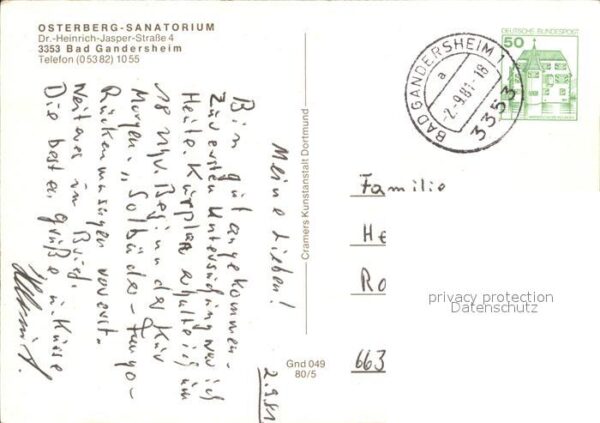 OSTERBERG-SANATORIUM
Dr.-Heinrich-Jasper-Straße 4
3353 Bad Gandersheim
Telefon (05382) 1055
2.9.81
Meine Lieben!
Bin gut angekommen.
Zur ersten Untersuchung war ich
Heute. Kurplan erhalte ich um
18 Uhr. Beginn der Kur
Morgen. Solbäder-
Rückenmassagen vorerst.
Weiteres im Brief.
Die besten Grüße u. Küsse
Cramers Kunstanstalt Dortmund
Gnd 049
80/5
DEUTSCHE BUNDESPOST
50
BAD GANDERSHEIM 1
a
-2.-9.81-18
3353
Familie
He
Ro
663
privacy protection
Datenschutz